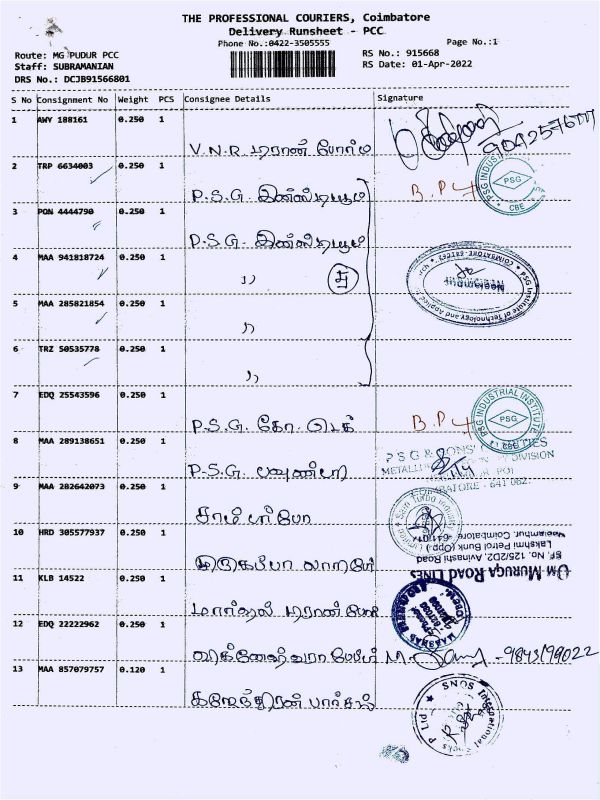 THE PROFESSIONAL COURIERS, Coimbatore
Delivery Runsheet - PCC
Phone No.:0422-3505555 Page No.:1
Route: MG PUDUR PCC RS No.: 915668
Staff: SUBRAMANIAN RS Date: 01-Apr-2022
DRS No.: DCJB91566801
S No Consignment No Weight PCS Consignee Details Signature
1 AWY 188161 0.250 1
V.N.R. டிரான் போர்ட் 9042576777
2 TRP 6634003 0.250 1
P.S.G. இன்ஸ்டியூட் B.P 4 PSG INDUSTRIAL PSG CBE
3 PON 4444790 0.250 1
P.S.G. இன்ஸ்டியூட்
4 MAA 941818724 0.250 1
,, PSG Institute of Technology and Applied Research COIMBATORE-641062 Neelambur
5 MAA 285821854 0.250 1
,,
6 TRZ 50535778 0.250 1
,,
7 EDQ 25543596 0.250 1
P.S.G. கோ. டெக் B.P 4 PSG INDUSTRIAL INSTITUTE PSG
8 MAA 289138651 0.250 1
P.S.G. பவுண்டரி PSG & SONS' CHARITIES
DIVISION
COIMBATORE - 641 062.
9 MAA 282642073 0.250 1
சாம் டர்போ Sam Turbo Industry
10 HRD 305577937 0.250 1
OM MURUGA ROAD LINES
SF. No. 125/2D2, Avinashi Road
Lakshmi Petrol Bunk (Opp.)
Neelambur, Coimbatore - 641 014
11 KLB 14522 0.250 1
மார்ஷல் டிரான் போர்ட்
12 EDQ 22222962 0.250 1
விக்னேஷ்வரா - 9843199022
13 MAA 857079757 0.120 1
கஜேந்திரன் பார்சல் SNOS International P Ltd